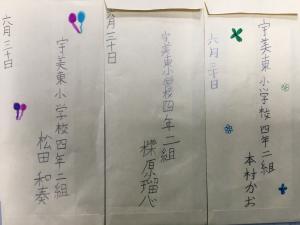 六月三十日
宇美東小学校四年二組
本村かお
六月三十日
宇美東小学校四年二組
榤原瑠心
六月三十日
宇美東小学校四年二組
松田和奏